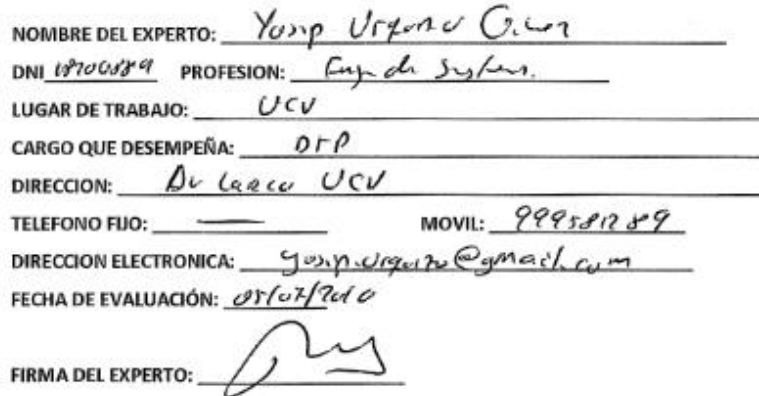 NOMBRE DEL EXPERTO: Yosip
DNI PROFESION: de
LUGAR DE TRABAJO: UCV
CARGO QUE DESEMPEÑA: DTP
DIRECCION: Av Larco UCV
TELEFONO FIJO: — MOVIL: 999581289
DIRECCION ELECTRONICA: yosip.urquizo@gmail.com
FECHA DE EVALUACIÓN:
FIRMA DEL EXPERTO: